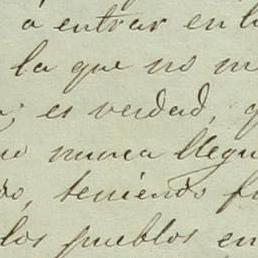 á entrar en l
la que no m
; es verdad,
nunca llegu
teniendo f
los pueblos en